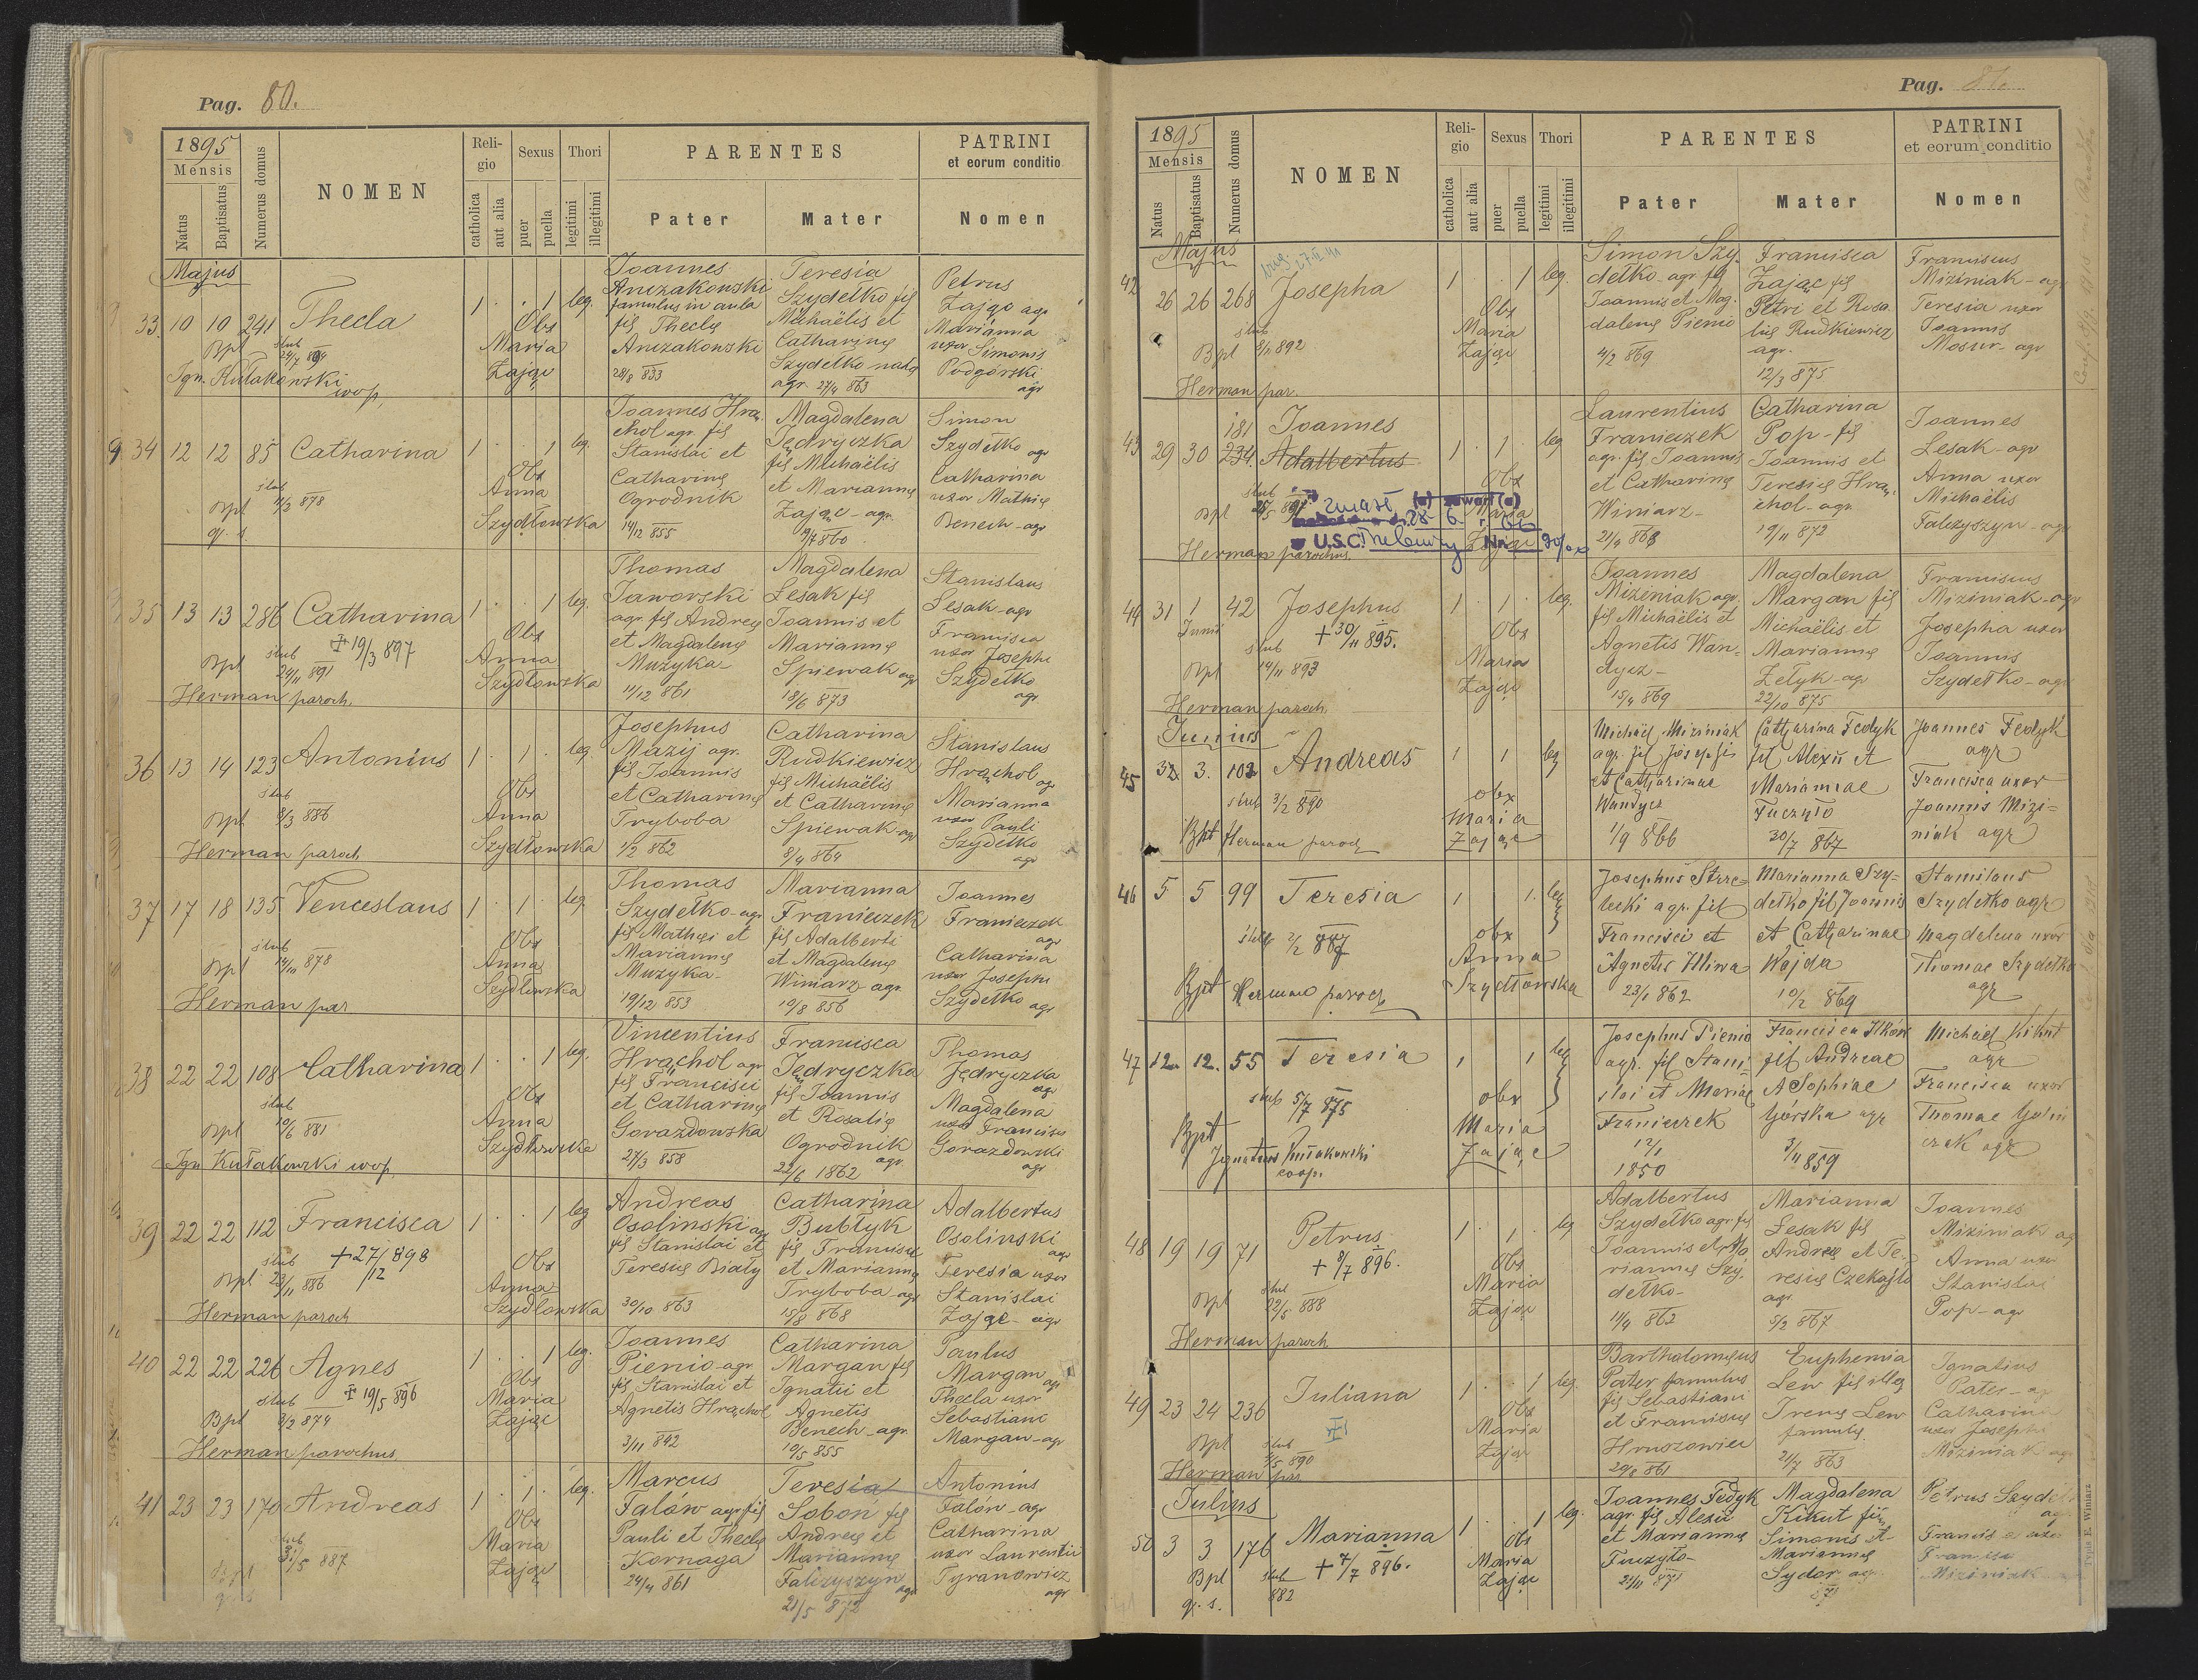 Pag. 80.
1895
Mensis
Natus
Baptisatus
Numerus domus
NOMEN
Religio
catholica
aut alia
Sexus
puer
puella
Thori
legitimi
illegitimi
PARENTES
Pater
Mater
PATRINI
et eorum conditio
Nomen
Majus
33. 10 10 241 Thecla 1 . . 1 leg.
Bpt ślub 24/7 894
Obs Maria Zając
Joannes
famulus in aula
fil Theclę
28/8 833
Teresia
Szydełko fil
Michaëlis et
Catharinę
Szydełko
agr. 27/4 863
Petrus
Zając agr
Marianna
uxor Simonis
Podgórski
agr
34 12 12 85 Catharina 1 . . 1 leg.
Bpt ślub 11/3 878
q. s.
Obs Anna Szydłowska
Joannes Hrą-
chol agr. fil
Stanislai et
Catharinę
Ogrodnik
14/12 855
Magdalena
Jędryczka
fil Michaëlis
et Mariannę
Zając - agr.
9/7 860
Simon
Szydełko agr
Catharina
uxor Mathię
Benech - agr
35 13 13 286 Catharina 1 . . 1 leg.
+ 19/3 897
Bpt ślub 24/11 891
Herman paroch.
Obs Anna Szydłowska
Thomas
Jaworski
agr. fil Andreę
et Magdalenę
Muzyka
11/12 861
Magdalena
Lesak fil
Joannis et
Mariannę
Spiewak agr
18/6 873
Stanislaus
Lesak - agr
Francisca
uxor Josephi
Szydełko
agr
36 13 14 123 Antonius 1 . 1 . leg
Bpt ślub 8/3 886
Herman paroch
Obs Anna Szydłowska
Josephus
Mazij agr.
fil Joannis
et Catharinę
Tryboba
1/2 862
Catharina
Rudkiewicz
fil Michaëlis
et Catharinę
Spiewak - agr
8/4 864
Stanislaus
Hrąchol
agr
Marianna
uxor Pauli
Szydełko
agr
37 17 18 135 Venceslaus 1 . 1 . leg
Bpt ślub 14/11 878
Herman par
Obs Anna Szydłowska
Thomas
Szydełko - agr
fil Mathęi et
Mariannę
Muzyka -
19/12 853
Marianna
Franiczek
fil Adalberti
et Magdalenę
Winiarz agr.
10/8 856
Joannes
Franiczek
agr
Catharina
uxor Josephi
Szydełko agr
38 22 22 108 Catharina 1 . . 1 leg.
Bpt ślub 10/6 881
Ign Kułakowski
Obs Anna Szydłowska
Vincentius
Hrąchol agr
fil Francisci
et Catharinę
Gorazdowska
27/3 858
Francisca
Jędryczka
fil Joannis
et Rosalię
Ogrodnik
agr
22/6 1862
Thomas
Jędryczka
agr
Magdalena
uxor Francisci
Gorazdowski
agr
39 22 22 112 Francisca 1 . . 1 leg
+ 27/12 898
Bpt ślub 23/11 886
Herman paroch
Obs Anna Szydłowska
Andreas
Osolinski agr
fil Stanislai et
Teresię Biały
30/10 863
Catharina
Bubłyk
fil Francisci
et Mariannę
Tryboba - agr
15/8 868
Adalbertus
Osolinski
agr
Teresia uxor
Stanislai
Zając - agr
40 22 22 226 Agnes 1 . . 1 leg.
+ 19/5 896
Bpt ślub 8/2 874
Herman parochus
Obs Maria Zając
Joannes
Pienio - agr.
fil Stanislai et
Agnetis Hrąchol
3/11 842
Catharina
Margan fil
Ignatii et
Agnetis
Benech - agr.
10/5 855
Paulus
Margan
agr
Thecla uxor
Sebastiani
Margan - agr
41 23 23 170 Andreas 1 . 1 . leg.
ślub 31/5 887
Obs Maria Zając
Marcus
Falów agr. fil
Pauli et Theclę
Kornaga
24/4 861
Teresia
Soboń fil
Andreę et
Mariannę
Falczyszyn
agr
21/5 872
Antonius
Falów - agr
Catharina
uxor Laurentii
Tyranowicz
agr
Pag. 81.
1895
Mensis
Natus
Baptisatus
Numerus domus
NOMEN
Religio
catholica
aut alia
Sexus
puer
puella
Thori
legitimi
illegitimi
PARENTES
Pater
Mater
PATRINI
et eorum conditio
Nomen
Majus
42 26 26 268 Josepha 1 . . 1 leg
Bpt ślub 8/2 892
Herman par.
Obs Maria Zając
Simon Szy-
dełko - agr fil
Joannis et Mag-
dalenę Pienio
4/2 869
Francisca
Zając fil
Petri et Rosa-
lię Rudkiewicz
agr.
12/3 875
Franciscus
Miziniak - agr
Teresia uxor
Joannis
Mosur - agr
43 29 30 181 234. Joannes Adalbertus 1 . 1 . leg
Bpt ślub 25/5 891
zmarł
28 6
U.S.C. Trebowży Nr.
Herman parochus
Obs Maria Zając
Laurentius
Franiczek
agr. fil Joannis
et Catharinę
Winiarz -
21/4 868
Catharina
Pop - fil
Joannis et
Teresię Hrą-
chol - agr.
19/11 872
Joannes
Lesak - agr
Anna uxor
Michaëlis
Falczyszyn - agr
44 31 1 Junii 42 Josephus 1 . 1 . leg.
+ 30/11 895.
Bpt ślub 14/11 893
Herman paroch
Obs Maria Zając
Joannes
Miziniak agr.
fil Michaëlis et
Agnetis Wan-
dycz -
15/4 869
Magdalena
Margan fil
Michaëlis et
Mariannę
Zełyk - agr
22/10 875
Franciscus
Miziniak - agr
Josepha uxor
Joannis
Szydełko - agr
Junius
45 3. 102 Andreas 1 1 leg
ślub 3/2 890
Bpt Herman paroch
obs Maria Zając
Michaël Miziniak
agr. fil Josephi
et Catharinae
Wandycz
1/9 866
Catharina Fedyk
fil Alexii et
Mariannae
Tuczyło
30/7 867
Joannes Fedyk
agr
Francisca uxor
Joannis Mizi-
niak agr
46 5 5 99 Teresia 1 . 1. leg
ślub 2/2 887
Bpt Herman paroch
obs Anna Szydłowska
Josephus Strze-
lecki agr. fil
Francisci et
Agnetis Hliwa
23/1 862
Marianna Szy-
dełko fil Joannis
et Catharinae
Wojda
10/2 869
Stanislaus
Szydełko agr
Magdalena uxor
Thomae Szydełko
agr
47 12. 12. 55 Teresia 1 1 leg
ślub 5/7 875
Bpt
Ignatius Kułakowski
coop.
obs Maria Zając
Josephus Pienio
agr. fil Stani-
slai et Mariae
Franiczek
12/1
1850
Francisca Ilków
fil Andreae
et Sophiae
Górska agr
3/11 859
Michael Kikut
agr
Francisca uxor
Thomae
agr
48 19 19 71 Petrus 1 . 1 . leg
+ 8/7 896.
Bpt ślub 22/5 888
Herman paroch
Obs Maria Zając
Adalbertus
Szydełko agr fil
Joannis et Ma-
riannę Szy-
dełko -
11/4 862
Marianna
Lesak fil
Andreę et Te-
resię Czekajło
agr
5/2 867
Joannes
Miziniak agr
Anna uxor
Stanislai
Pop - agr
49 23 24 236 Juliana 1 . . 1 leg.
Bpt ślub 890
Herman par
Obs Maria Zając
Bartholomęus
Pater famulus
fil Sebastiani
et Franciscę
Hruszowiec
29/8 861
Euphemia
Lew fil illeg
Irenę Lew
famulę
21/7 863
Ignatius
Pater - agr
Catharina
uxor Josephi
Miziniak agr
Julius
50 3 3 176 Marianna 1 . . 1 leg.
+ 7/7 896.
Bpt ślub
882
q. s.
Obs Maria Zając
Joannes Fedyk
agr. fil Alexii
et Mariannę
Tuczyło -
21/11 871
Magdalena
Kikut fil
Simonis et
Mariannę
Sydor agr.
Petrus Szydełko
agr
Miziniak
Typis E. Winiarz